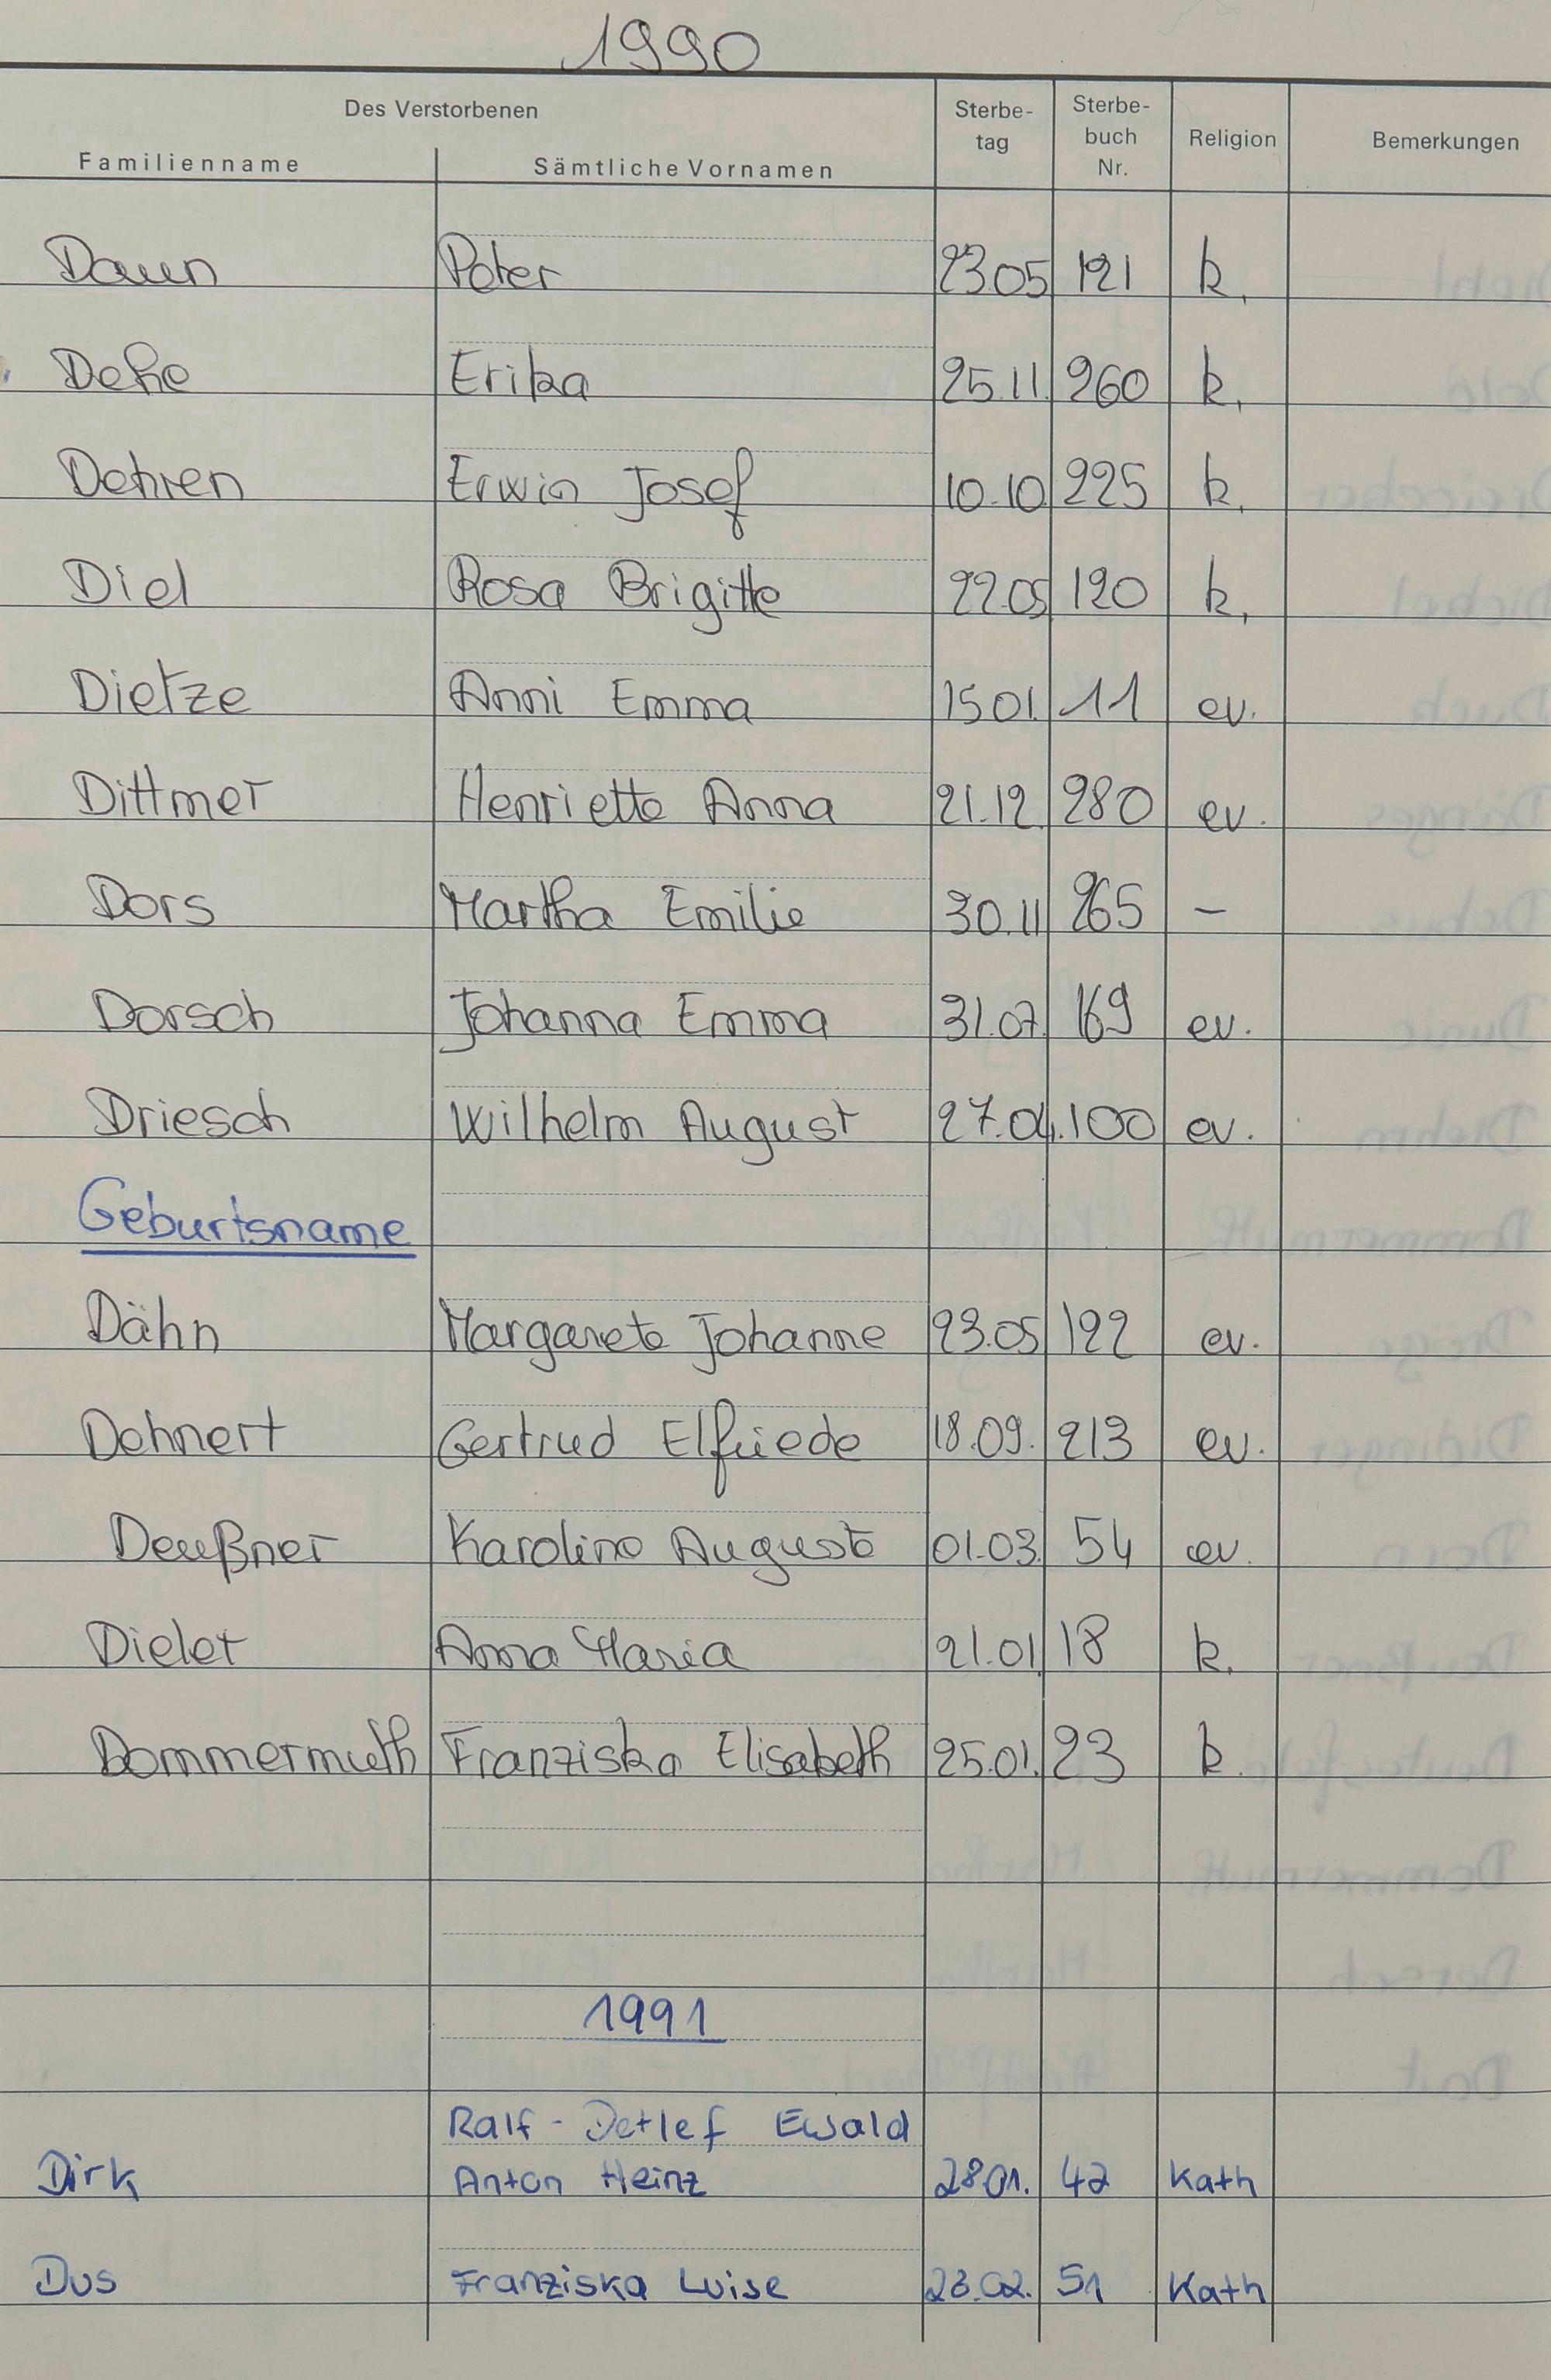 1990
Des Verstorbenen
Familienname Sämtliche Vornamen Sterbe-tag Sterbe-buch Nr. Religion Bemerkungen
Daun Peter 23.05 121 k.
Dehe Erika 25.11. 260 k.
Dehren Erwin Josef 10.10. 225 k.
Diel Rosa Brigitte 22.05 120 k.
Dietze Anni Emma 15.01. 11 ev.
Dittmer Henriette Anna 21.12. 280 ev.
Dors Martha Emilie 30.11 265 –
Dorsch Johanna Emma 31.07. 169 ev.
Driesch Wilhelm August 27.04. 100 ev.
Geburtsname
Dähn Margarete Johanne 23.05 122 ev.
Dehnert Gertrud Elfriede 18.09. 213 ev.
Deußner Karoline Auguste 01.03. 54 ev.
Dieler Anna Maria 21.01. 18 k.
Dommermuth Franziska Elisabeth 25.01. 23 k.
1991
Ralf-Detlef Ewald
Dirk Anton Heinz 28.01. 42 Kath
Dus Franziska Luise 23.02. 51 Kath